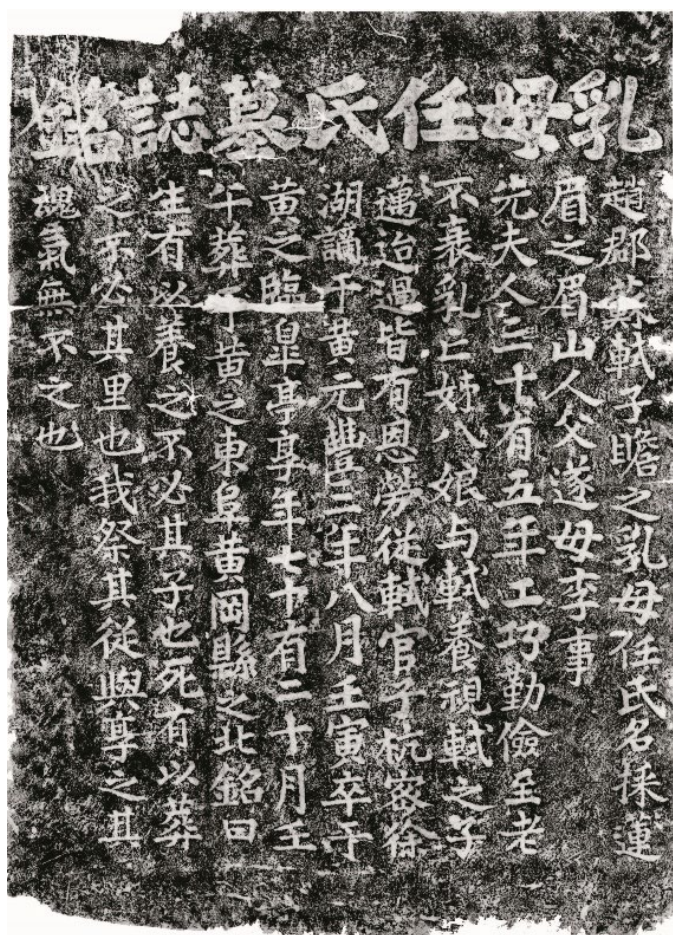 乳母任氏墓誌銘
趙郡蘇軾子瞻之乳母任氏名採蓮
眉之眉山人父遂母李事
先夫人三十有五年工巧勤儉至老
不衰乳亡姊八娘与軾養視軾之子
邁迨過皆有恩勞從軾官于杭密徐
湖謫于黃元豐三年八月壬寅卒于
黃之臨皐亭享年七十有二十月壬
午葬于黃之東阜黃岡縣之北銘曰
生有以養之不必其子也死有以葬
之不必其里也我祭其從與享之其
魂氣無不之也